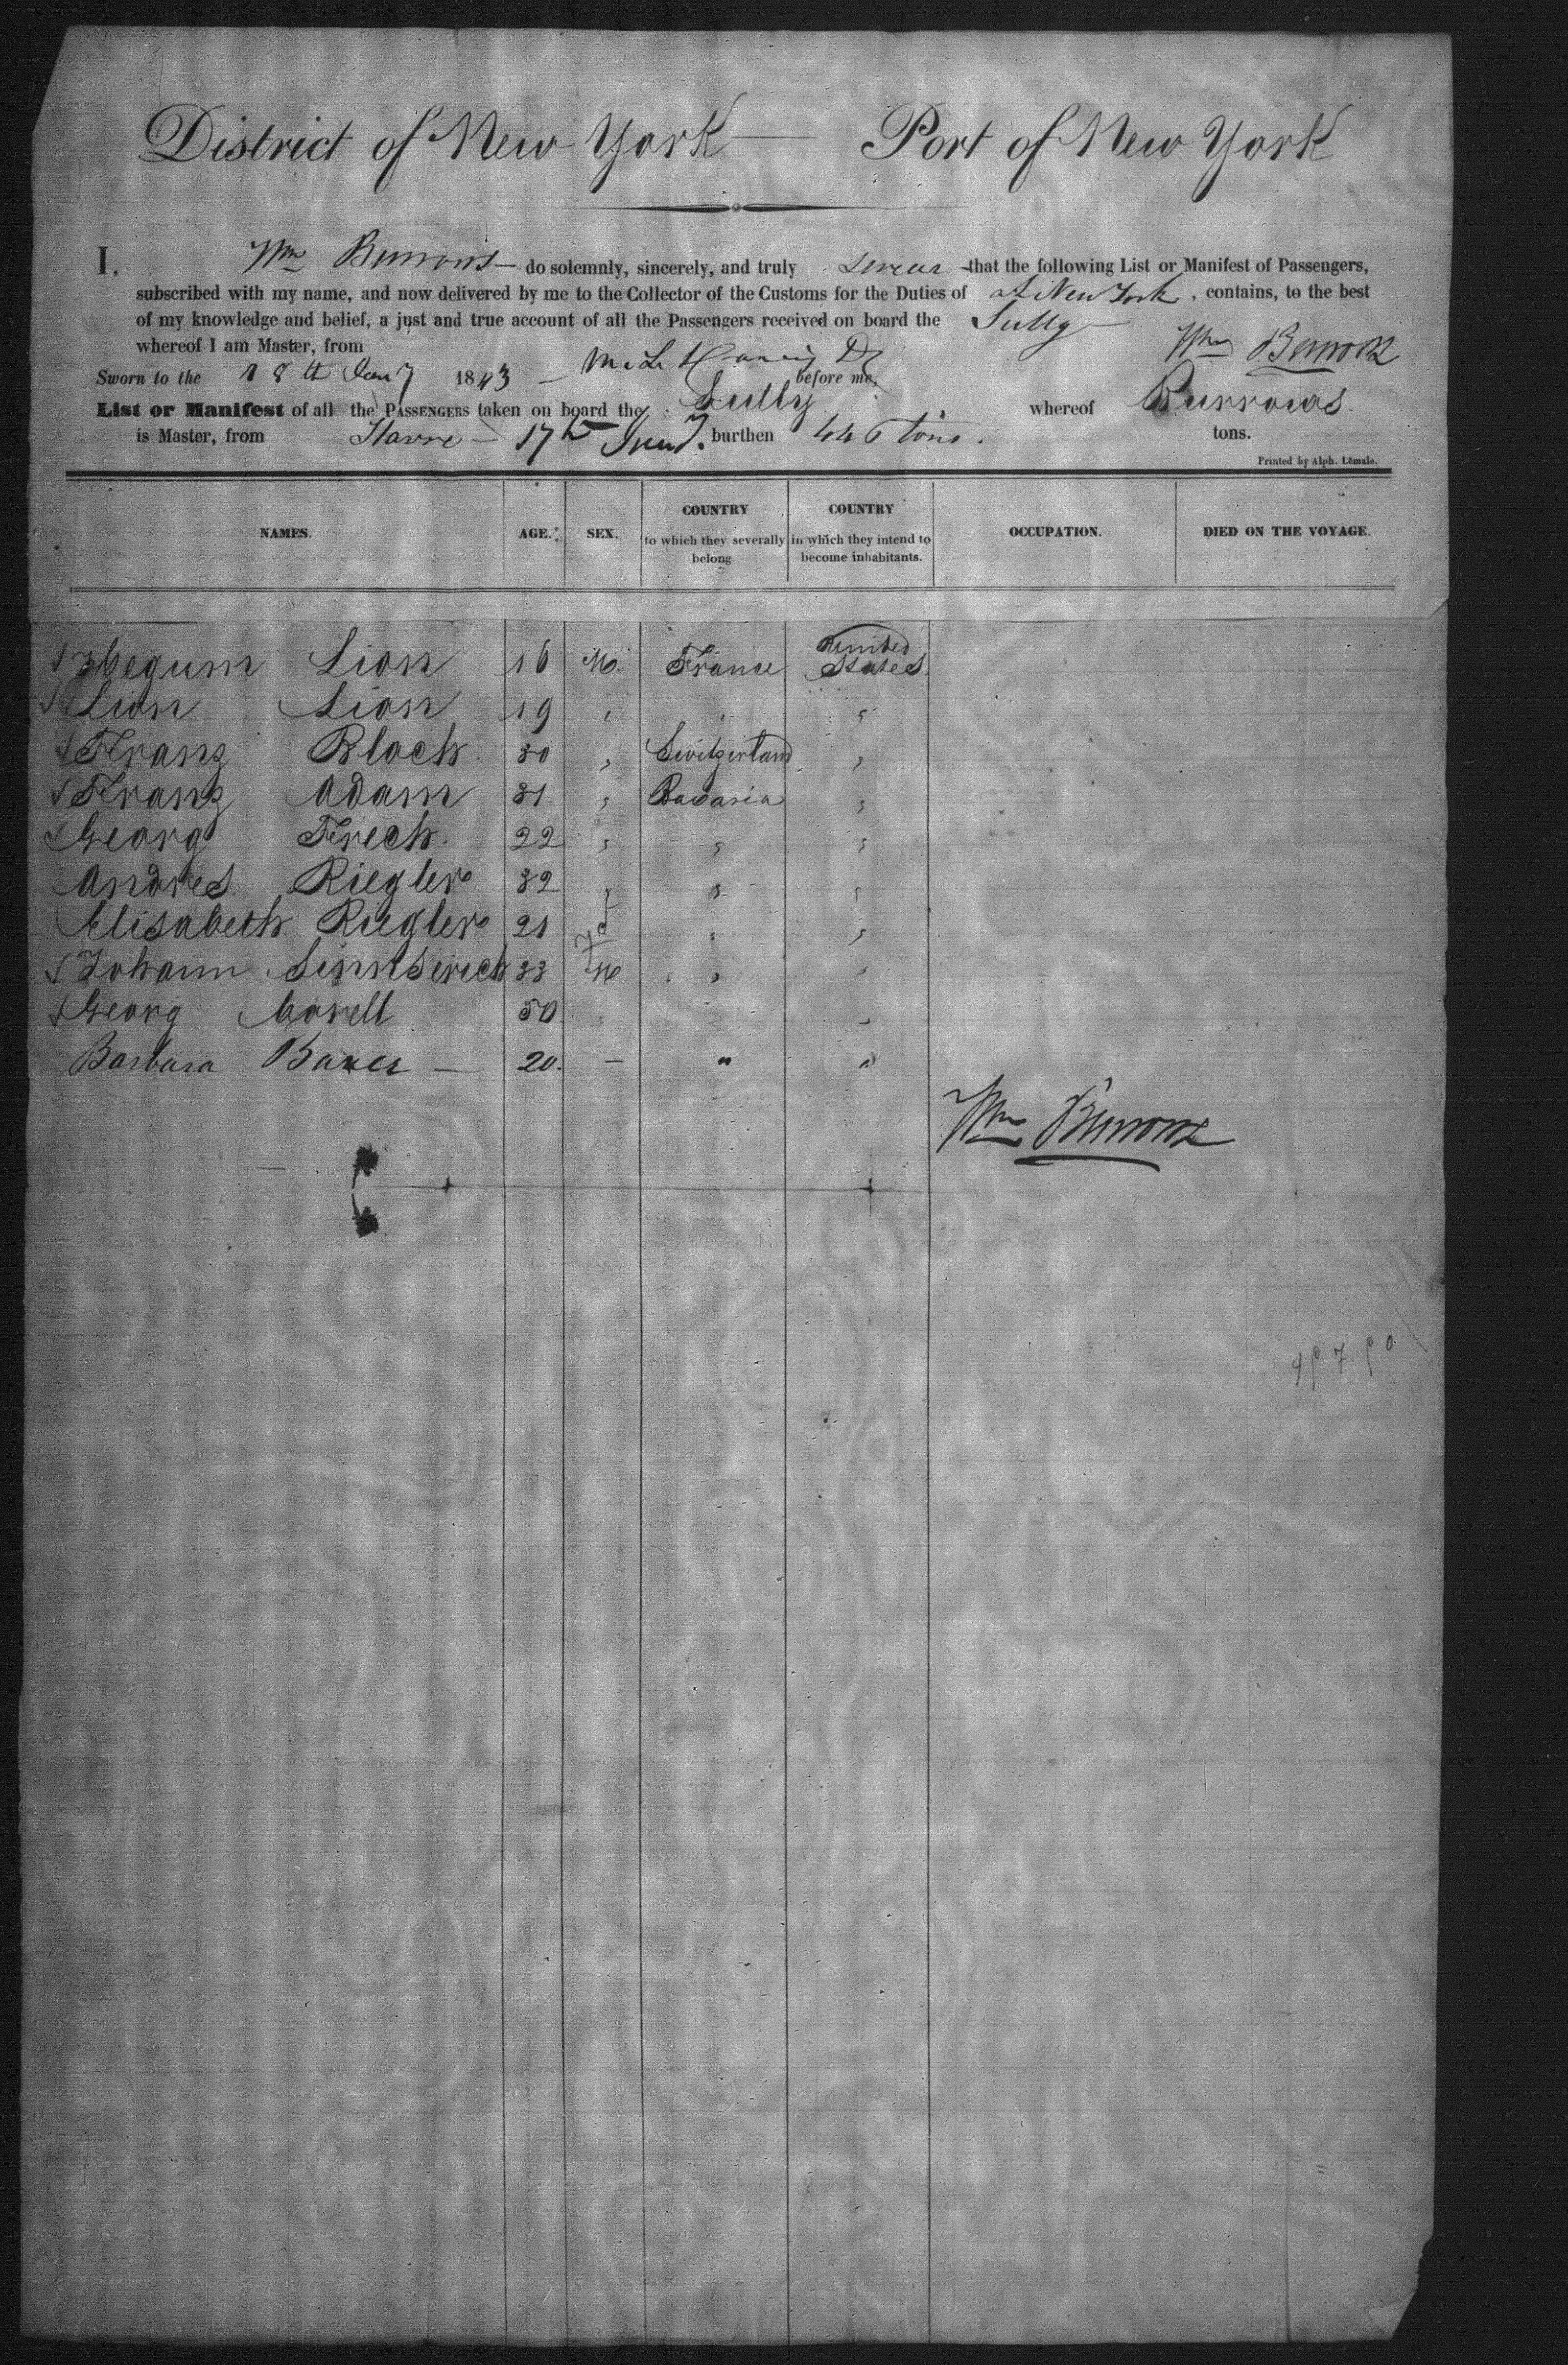 District of New York — Port of New York
I, Wm Burrows do solemnly, sincerely, and truly swear that the following List or Manifest of Passengers,
subscribed with my name, and now delivered by me to the Collector of the Customs for the Duties of at New York, contains, to the best
of my knowledge and belief, a just and true account of all the Passengers received on board the Sully
whereof I am Master, from Wm Burrows
Sworn to the 18th Jany 1843 — before me,
List or Manifest of all the PASSENGERS taken on board the Sully whereof Burrows
is Master, from Havre — 17th burthen 446 tons. tons.
Printed by Alph. Lemale.
NAMES. AGE. SEX. COUNTRY to which they severally belong COUNTRY in which they intend to become inhabitants. OCCUPATION. DIED ON THE VOYAGE.
Lion 16 M. France United States
Lion Lion 19 " " "
Franz Bloch. 30 " Switzerland "
Franz Adam 31. " Bavaria "
Georg Frech. 22 " " "
Andres. Riegler 32 " " "
Elisabeth Riegler 21 f " "
Johann 33 M " "
Georg 50
Barbara 20. — " "
Wm Burrows